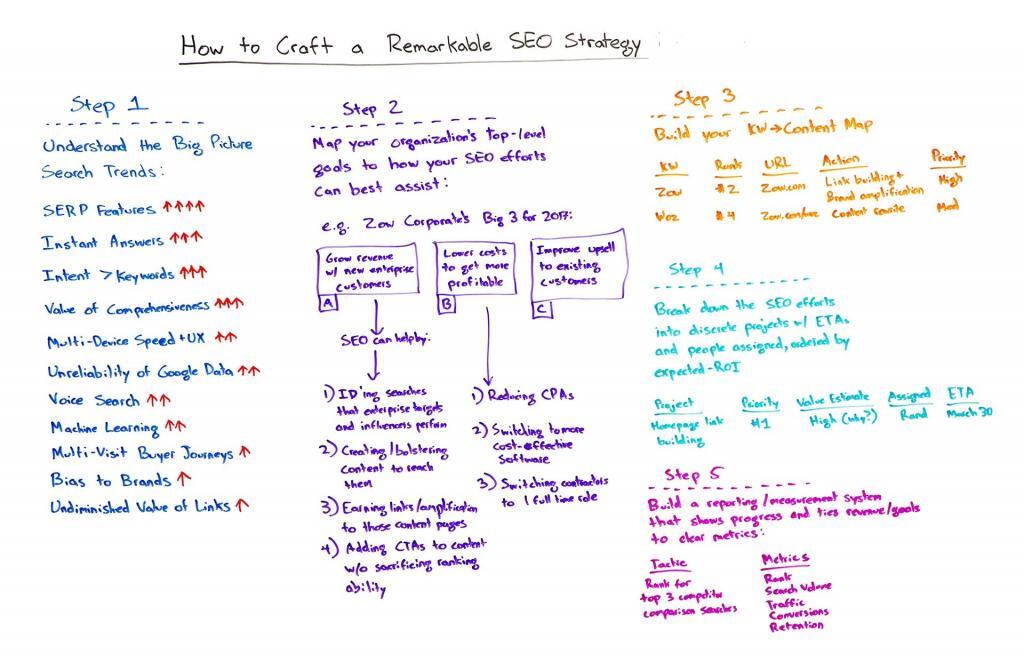 How to Craft a Remarkable SEO Strategy
Step 1
Understand the Big Picture
Search Trends:
SERP Features ↑↑↑↑
Instant Answers ↑↑↑
Intent > Keywords ↑↑↑
Value of Comprehensiveness ↑↑↑
Multi-Device Speed + UX ↑↑
Unreliability of Google Data ↑↑
Voice Search ↑↑
Machine Learning ↑↑
Multi-Visit Buyer Journeys ↑
Bias to Brands ↑
Undiminished Value of Links ↑
Step 2
Map your organization's top-level
goals to how your SEO efforts
can best assist:
e.g. Zow Corporate's Big 3 for 2017:
Grow revenue
w/ new enterprise
customers
A
Lower costs
to get more
profitable
B
Improve upsell
to existing
customers
C
SEO can help by:
1) ID'ing searches
that enterprise targets
and influencers perform
2) Creating/bolstering
content to reach
them
3) Earning links/amplification
to those content pages
4) Adding CTAs to content
w/o sacrificing ranking
ability
1) Reducing CPAs
2) Switching to more
cost-effective
software
3) Switching contractors
to 1 full time role
Step 3
Build your KW→Content Map
KW Rank URL Action Priority
Zow #2 Zow.com Link building + Brand amplification High
Woz #4 Zow.com/woz Content rewrite Med
Step 4
Break down the SEO efforts
into discrete projects w/ ETAs
and people assigned, ordered by
expected-ROI
Project Priority Value Estimate Assigned ETA
Homepage link building #1 High (why?) Rand March 30
Step 5
Build a reporting/measurement system
that shows progress and ties revenue/goals
to clear metrics:
Tactic
Rank for
top 3 competitor
comparison searches
Metrics
Rank
Search Volume
Traffic
Conversions
Retention